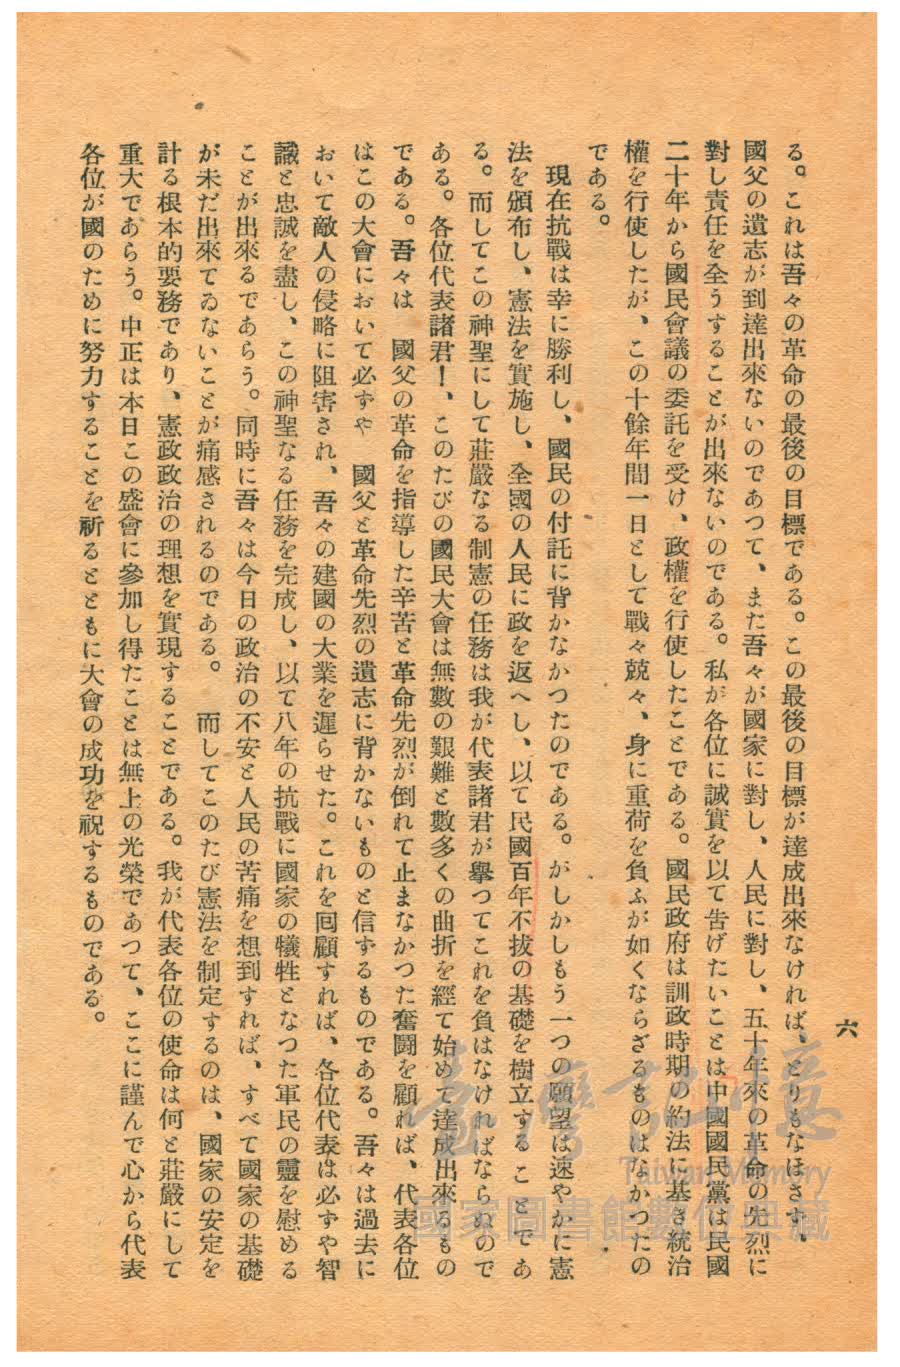 六
る。これは吾々の革命の最後の目標である。この最後の目標が達成出來なければ、とりもなほさず、
國父の遺志が到達出來ないのであつて、また吾々が國家に對し、人民に對し、五十年來の革命の先烈に
對し責任を全うすることが出來ないのである。私が各位に誠實を以て告げたいことは中國國民黨は民國
二十年から國民會議の委託を受け、政權を行使したことである。國民政府は訓政時期の約法に基き統治
權を行使したが、この十餘年間一日として戰々兢々、身に重荷を負ふが如くならざるものはなかつたの
である。
現在抗戰は幸に勝利し、國民の付託に背かなかつたのである。がしかしもう一つの願望は速やかに憲
法を頒布し、憲法を實施し、全國の人民に政を返へし、以て民國百年不拔の基礎を樹立することであ
る。而してこの神聖にして莊嚴なる制憲の任務は我が代表諸君が擧つてこれを負はなければならぬので
ある。各位代表諸君！、このたびの國民大會は無數の艱難と數多くの曲折を經て始めて達成出來るもの
である。吾々は　國父の革命を指導した辛苦と革命先烈が倒れて止まなかつた奮鬪を顧れば、代表各位
はこの大會において必ずや　國父と革命先烈の遺志に背かないものと信ずるものである。吾々は過去に
おいて敵人の侵略に阻害され、吾々の建國の大業を遲らせた。これを囘顧すれば、各位代表は必ずや智
識と忠誠を盡し、この神聖なる任務を完成し、以て八年の抗戰に國家の犠牲となつた軍民の靈を慰める
ことが出來るであらう。同時に吾々は今日の政治の不安と人民の苦痛を想到すれば、すべて國家の基礎
が未だ出來てゐないことが痛感されるのである。　而してこのたび憲法を制定するのは、國家の安定を
計る根本的要務であり、憲政政治の理想を實現することである。我が代表各位の使命は何と莊嚴にして
重大であらう。中正は本日この盛會に參加し得たことは無上の光榮であつて、ここに謹んで心から代表
各位が國のために努力することを祈るとともに大會の成功を祝するものである。
臺灣記憶
Taiwan Memory
國家圖書館數位典藏